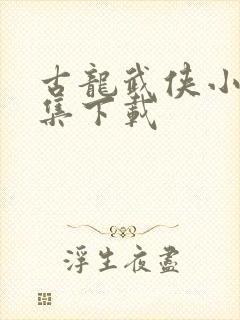 古龍武侠小
集下載
浮生夜盡